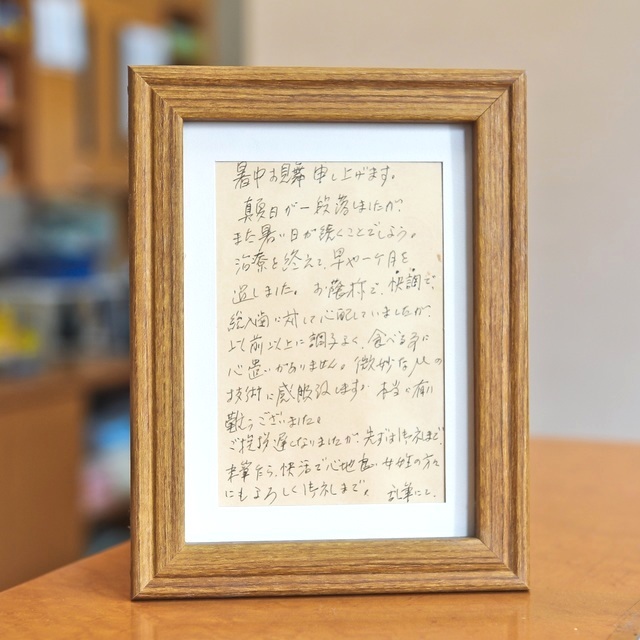 暑中お見舞申し上げます。
真夏日が一段落しましたが、
また暑い日が続くことでしょう。
治療を終えて、早や一ケ月を
過しました。お蔭様で、快調で、
総入歯に対して心配していましたが、
以前以上に調子よく、食べる事に
心置いがありません。微妙なμの
技術に感服致します。本当に有り
難うございました。
ご挨拶遅くなりましたが、先ずは御礼まで
末筆乍ら、快活で心地良い女性の方々
にもよろしく御礼まで。 乱筆にて、